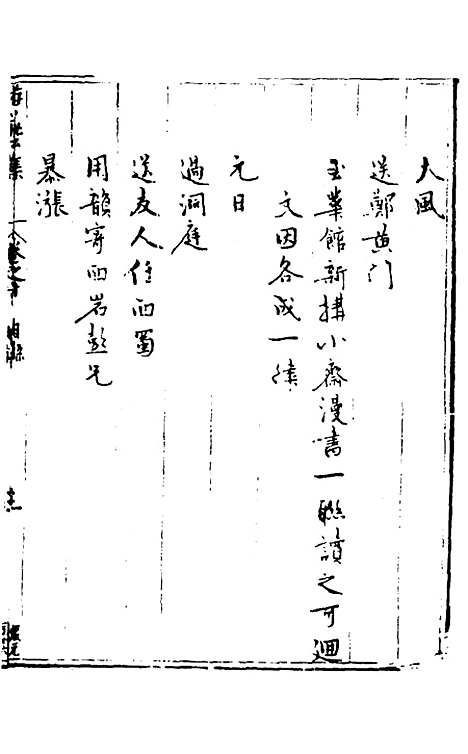 大風
送鄭黄門
玉華館新搆小齋漫書一聯讀之可迴
文因各成一律
元日
過洞庭
送友人任西蜀
用韻寄西岩彭兄
暴漲